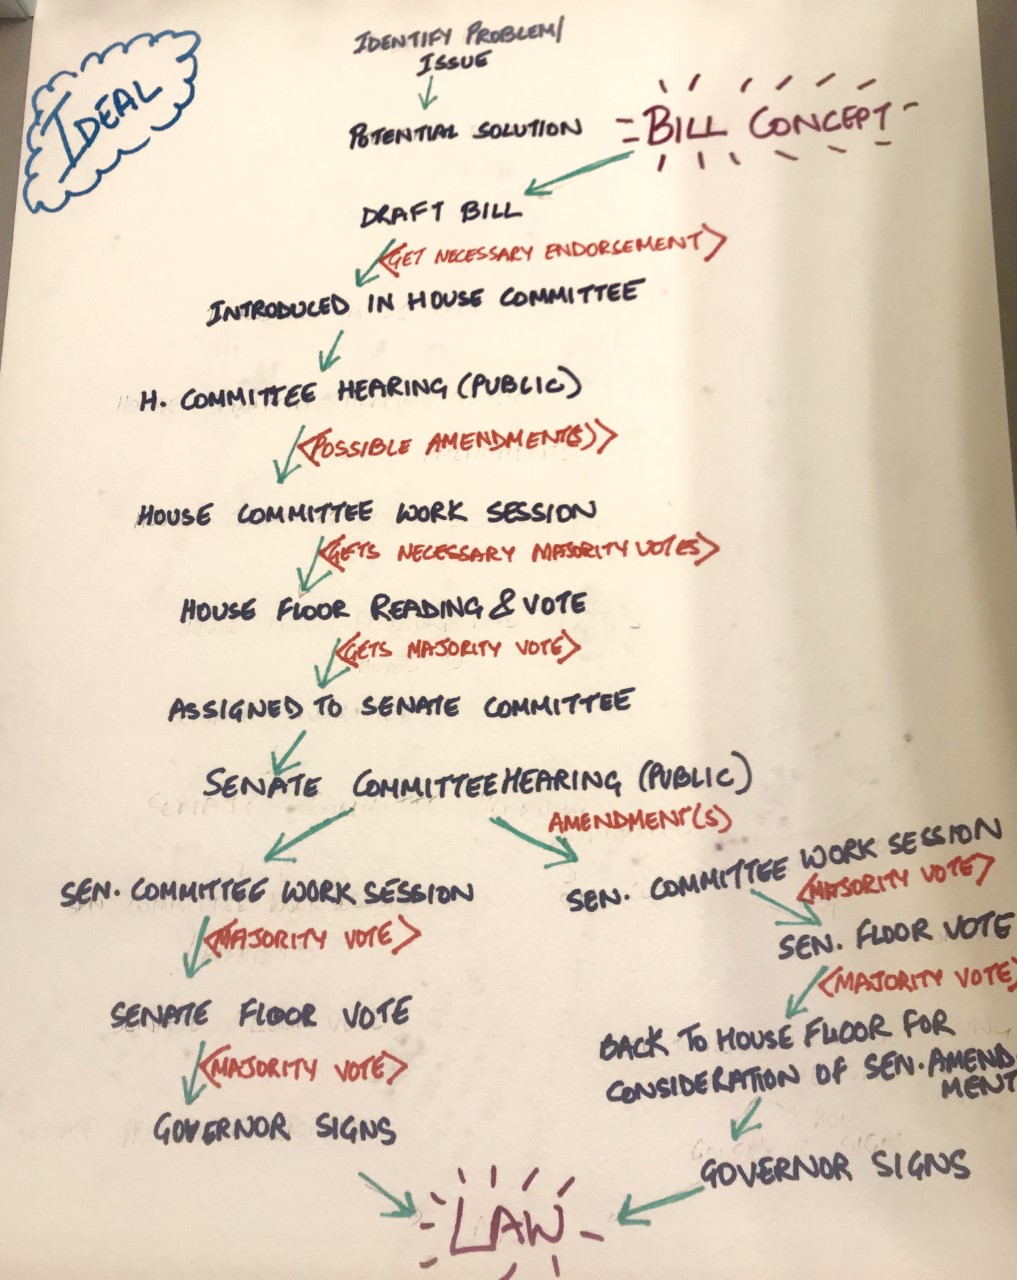 IDEAL
IDENTIFY PROBLEM/
ISSUE
POTENTIAL SOLUTION
BILL CONCEPT
DRAFT BILL
<GET NECESSARY ENDORSEMENT>
INTRODUCED IN HOUSE COMMITTEE
H. COMMITTEE HEARING (PUBLIC)
<POSSIBLE AMENDMENT(S)>
HOUSE COMMITTEE WORK SESSION
<GETS NECESSARY MAJORITY VOTES>
HOUSE FLOOR READING & VOTE
<GETS MAJORITY VOTE>
ASSIGNED TO SENATE COMMITTEE
SENATE COMMITTEE HEARING (PUBLIC)
AMENDMENT(S)
SEN. COMMITTEE WORK SESSION
<MAJORITY VOTE>
SENATE FLOOR VOTE
<MAJORITY VOTE>
GOVERNOR SIGNS
SEN. COMMITTEE WORK SESSION
<MAJORITY VOTE>
SEN. FLOOR VOTE
<MAJORITY VOTE>
BACK TO HOUSE FLOOR FOR
CONSIDERATION OF SEN. AMEND-
MENT
GOVERNOR SIGNS
LAW